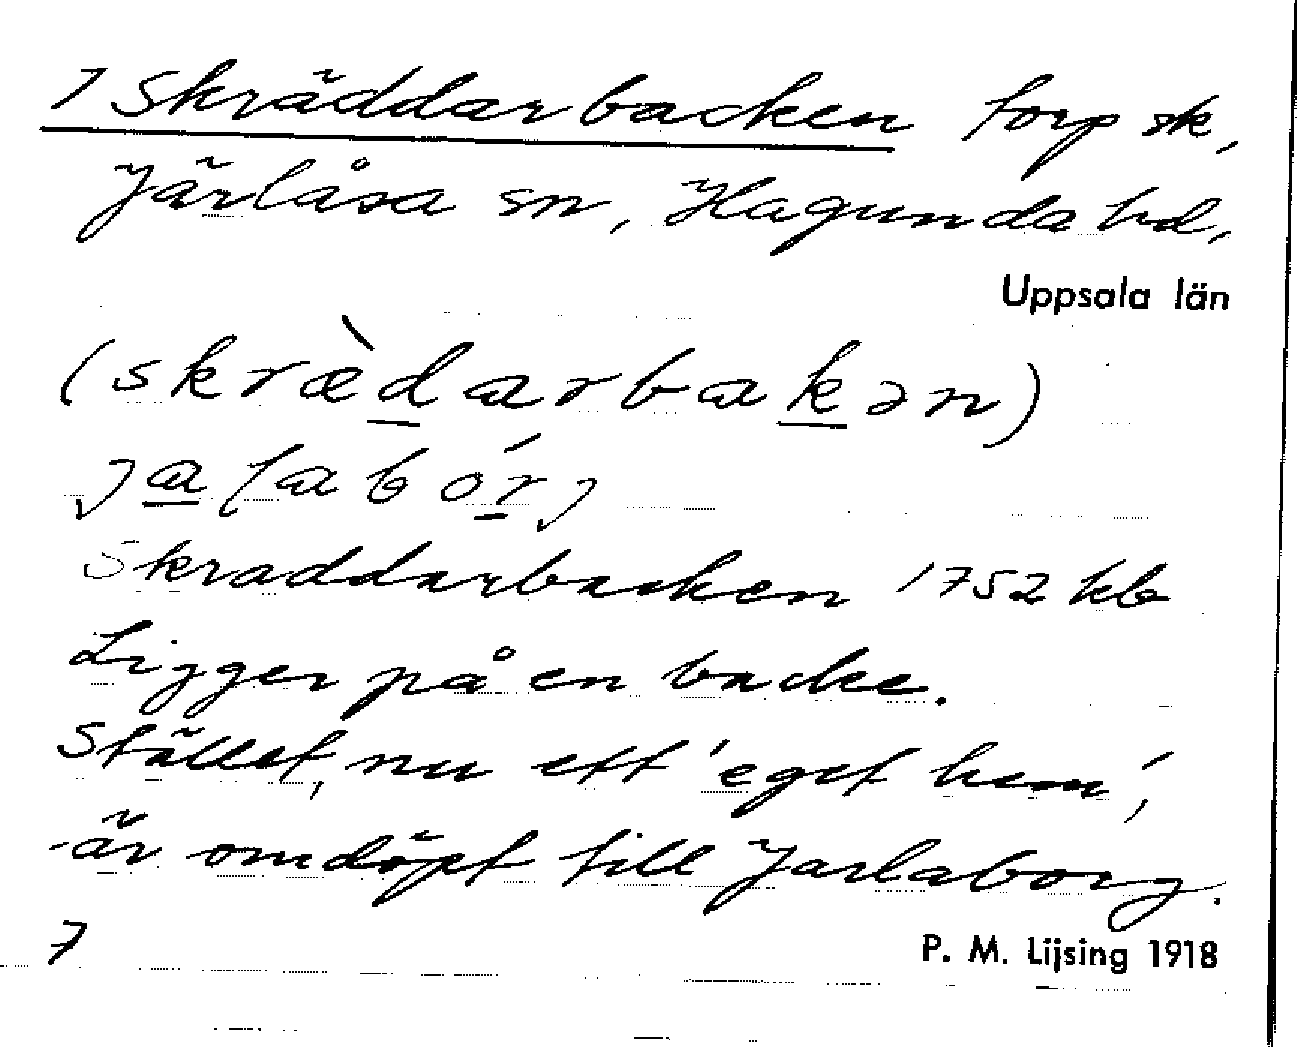 7 Skräddarbacken torp sk,
Järlåsa sn, Hagunda hd,
Uppsala län
(skræ̀darbakən)
jalabórj
Skraddarbacken 1752 kb
Ligger på en backe.
Stället, nu ett 'eget hem',
är omdöpt till Jarlaborg.
7
P. M. Lijsing 1918